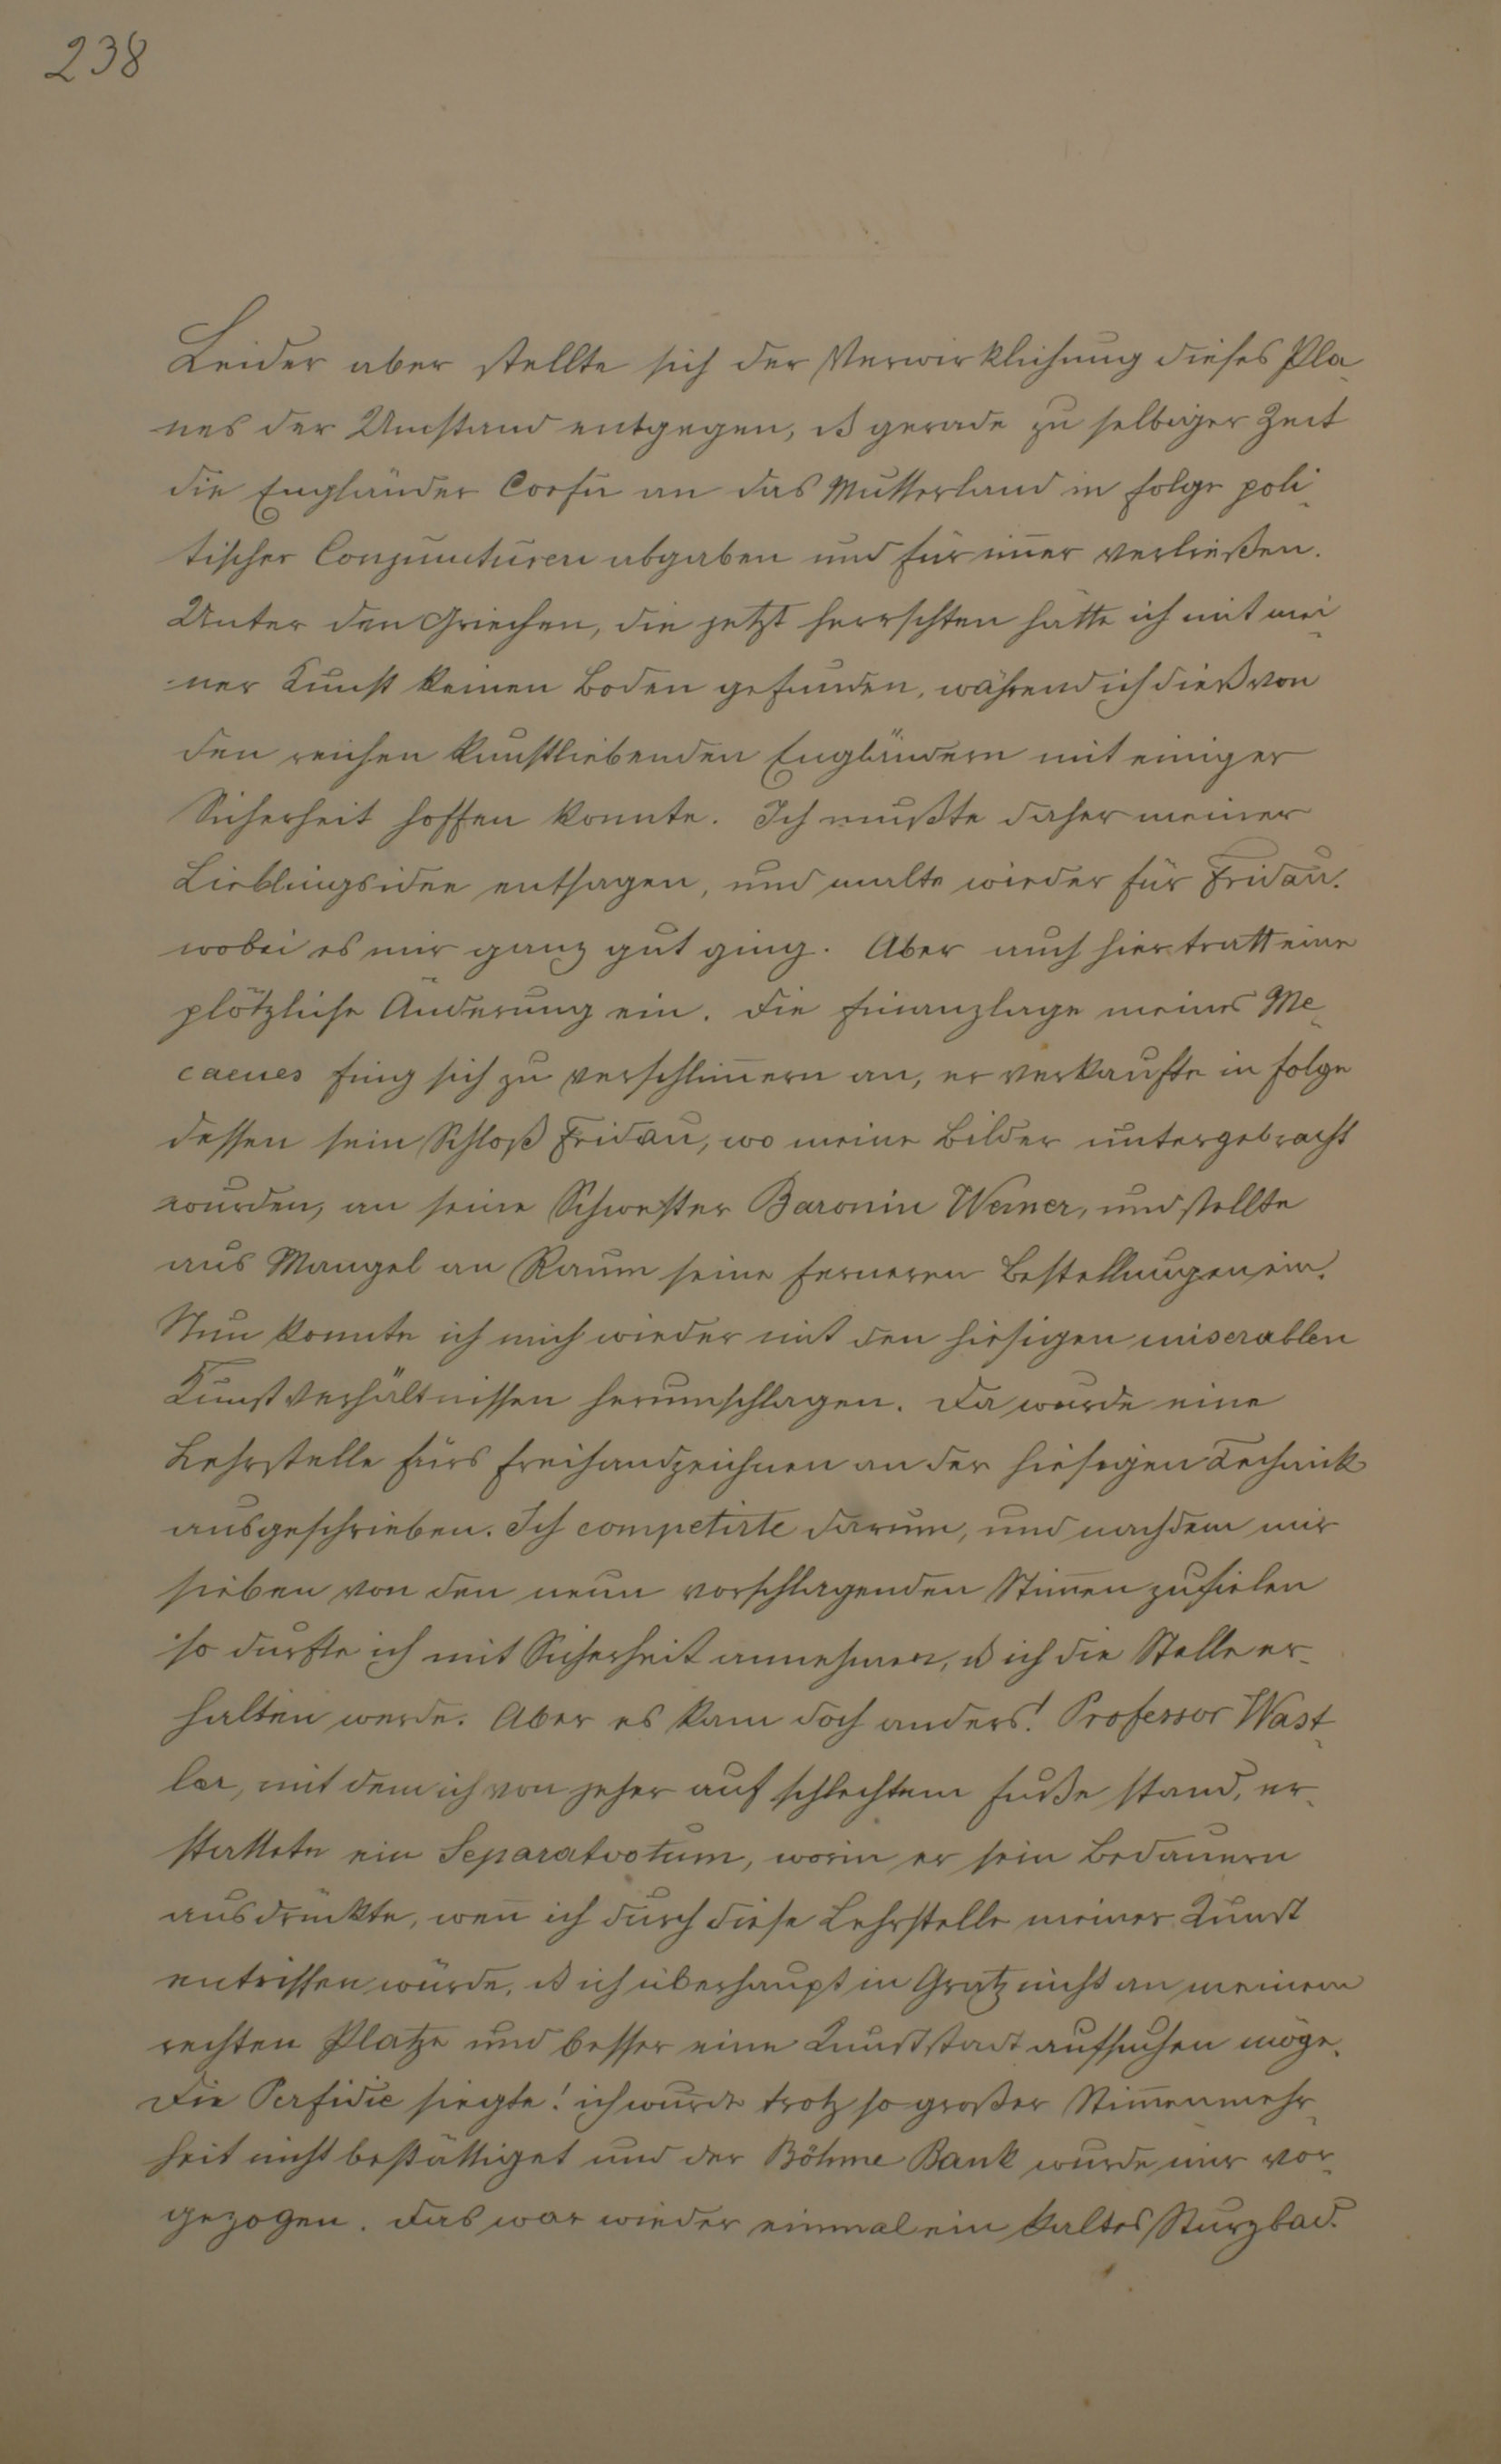 238
Leider aber stellte sich der Verwirklichung dieses Pla
nes der Umstand entgegen, ß gerade zu selbiger Zeit
die Engländer Corfu an das Mutterland in Folge poli
tischer Conjuncturen abgaben und für im̅er verließen.
Unter den Griechen, die jetzt herrschten hätte ich mit mei
ner Kunst keinen Boden gefunden, während ich dieß von
den reichen kunstliebenden Engländern mit einiger
Sicherheit hoffen konnte. Ich mußte daher meiner
Lieblingsidee entsagen, und malte wieder für Fridau,
wobei es mir ganz gut ging. Aber auch hier tratt eine
plötzliche Änderung ein. Die Finanzlage meines Me
caenes fing sich zu verschlim̅ern an, er verkaufte in Folge
dessen sein Schloß Fridau, wo meine Bilder untergebracht
wurden, an seine Schwester Baronin Werner, und stellte
aus Mangel an Raum seine ferneren Bestellungen ein.
Nun konnte ich mich wieder mit den hiesigen miserablen
Kunstverhältnissen herumschlagen. Da wurde eine
Lehrstelle fürs Freihandzeichnen an der hiesigen Technik
ausgeschrieben. Ich competirte darum, und nachdem mir
sieben von den neun vorschlagenden Stim̅en zufielen
so durfte ich mit Sicherheit annehmen, ß ich die Stelle er-
halten werde. Aber es kam doch anders! Professor Wast
ler, mit dem ich von jeher auf schlechtem Fuße stand, er-
stattete ein Separatvotum, worin er sein Bedauern
ausdrückte, wen̅ ich durch diese Lehrstelle meiner Kunst
entrissen würde, ß ich überhaupt in Gratz nicht an meinem
rechten Platze und besser eine Kunststadt aufsuchen möge.
Die Perfidie siegte! ich wurde trotz so großer Stim̅enmehr
heit nicht bestättiget und der Böhme Bank wurde mir vor
gezogen. Das war wieder einmal ein kaltes Sturzbad.